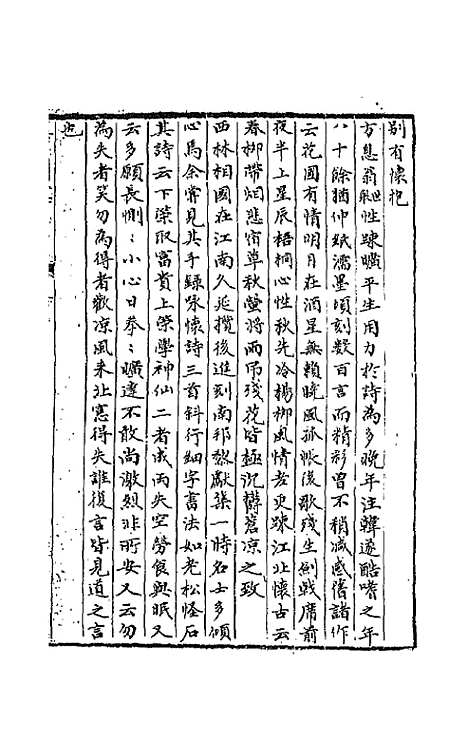 別有懷抱
方息翁世性踈曠平生用力於詩為多晚年注韓遂酷嗜之年
八十餘猶伸紙濡墨頃刻數百言而精彩曾不稍减感舊諸作
云花國有情明月在酒星無賴曉風孤帳後歌殘生劍戟席前
夜半上星辰梧桐心性秋先冷楊柳風情老更踈江北懷古云
春柳帶烟悲宿草秋螢將雨吊殘花皆極沉欝蒼凉之致
西林相國在江南久延攬後進刻南邦黎獻集一時名士多傾
心焉余嘗見其手錄咏懷詩三首斜行細字書法如老松怪石
其詩云下榮取富貴上榮學神仙二者成兩失空勞食與眠又
云多願長惻惻小心日拳拳曠達不敢尚激烈非所安又云勿
為失者笑勿為得者歡凉風來北窓得失誰復言皆見道之言
也